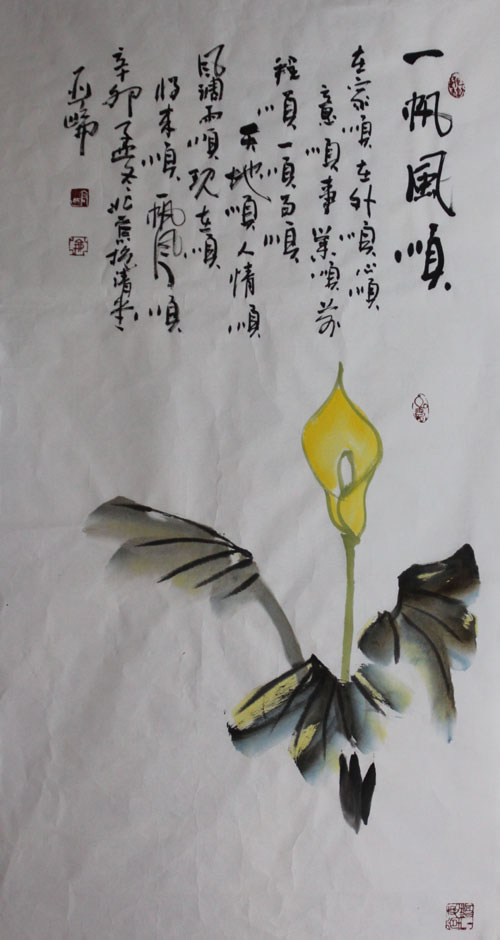 一帆風順
在家順在外順心順
意順事業順前
程順一順百順
天地順人情順
風調雨順現在順
將來順一帆風順
辛卯孟冬